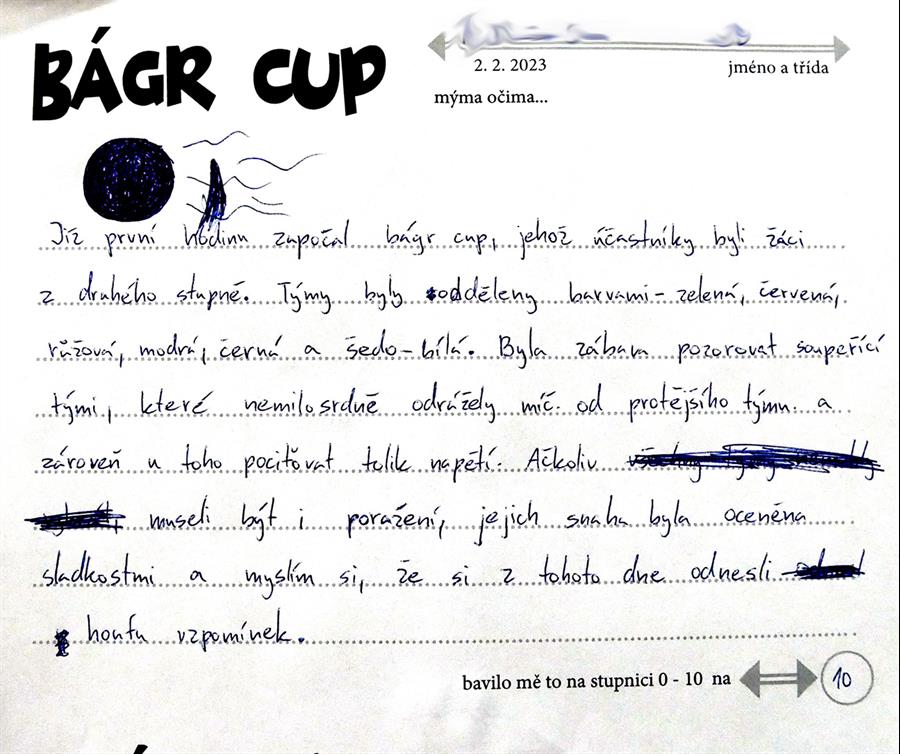 BÁGR CUP
2. 2. 2023
jméno a třída
mýma očima...
Již první hodinu započal bágr cup, jehož účastníky byli žáci
z druhého stupně. Týmy byly odděleny barvami - zelená, červená,
růžová, modrá, černá a šedo-bílá. Byla zábava pozorovat soupeřící
tými, které nemilosrdně odrážely míč od protějšího týmu a
zároveň u toho pociťovat tolik napětí. Ačkoliv
museli být i poražení, jejich snaha byla oceněna
sladkostmi a myslím si, že si z tohoto dne odnesli
houfu vzpomínek.
bavilo mě to na stupnici 0 - 10 na
10